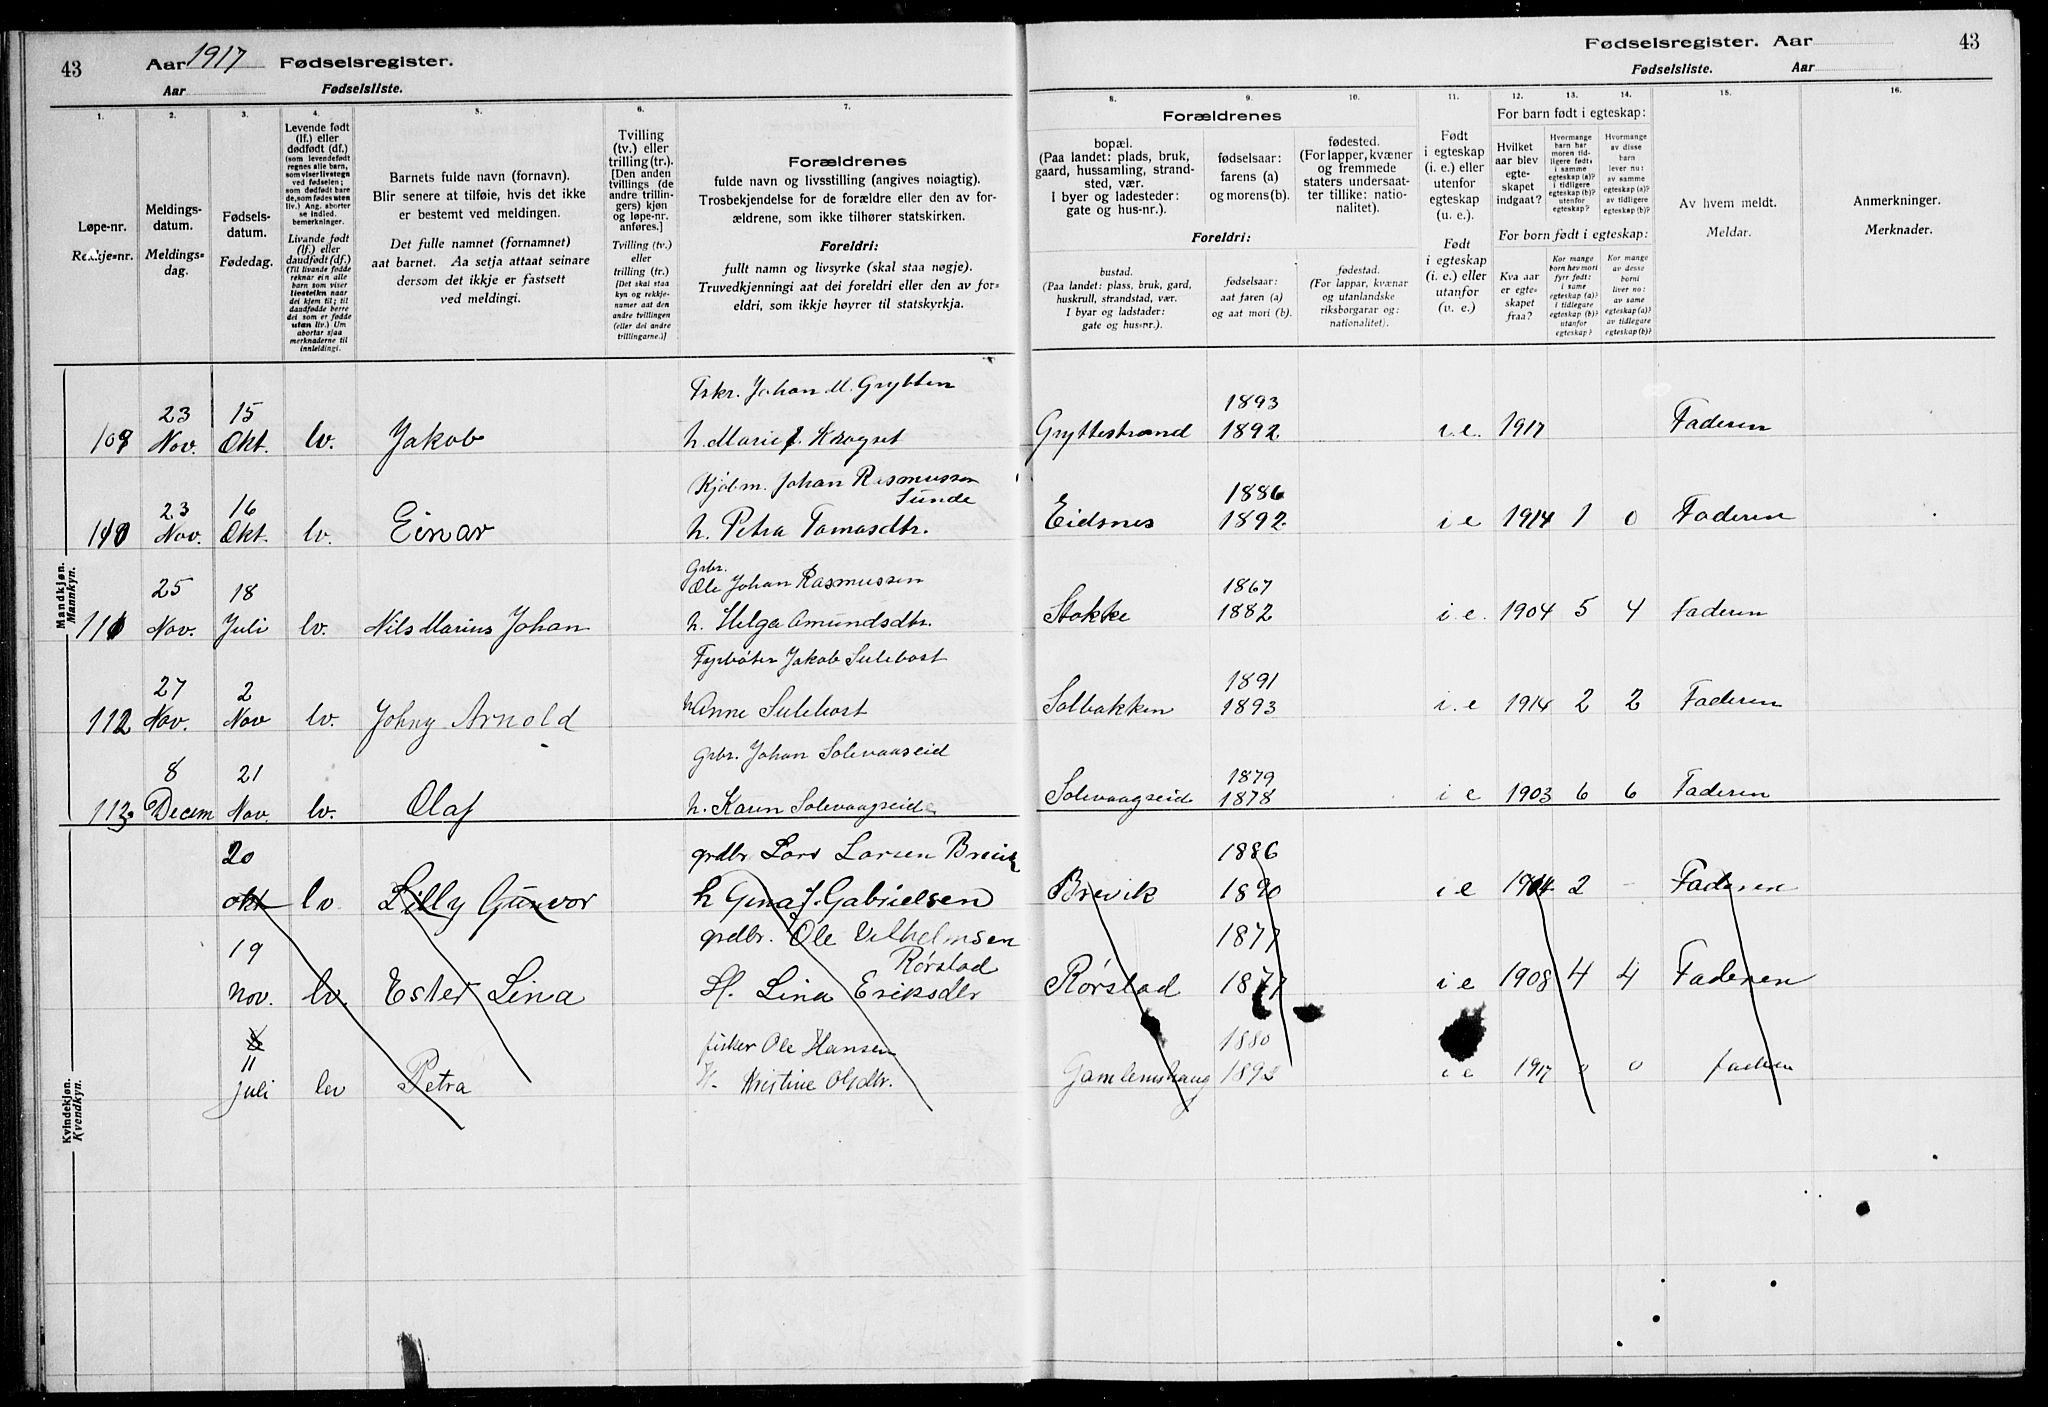 43
Aar 1917 Fødselsregister.
Aar Fødselsliste.
Fødselsregister. Aar
43
Fødselsliste. Aar
1.
Løpe-nr.
Rekkje=nr.
2.
Meldings-
datum.
Meldings=
dag.
3.
Fødsels-
datum.
Fødedag.
4.
Levende født
(lf.) eller
dødfødt (df.)
(som levendefødt
regnes alle barn,
som viser livstegn
ved fødselen;
som dødfødt bare
de, som fødes uten
liv.) Ang. aborter
se indled.
bemerkninger.
Livande født
(lf.) eller
daudfødt (df.)
(Til livande fødde
reknar ein alle
barn som viser
livsteikn naar
dei kjem til; til
daudfødde berre
dei som er fødde
utan liv.) Um
abortar sjaa
merknaderne til
innleidingi.
5.
Barnets fulde navn (fornavn).
Blir senere at tilføie, hvis det ikke
er bestemt ved meldingen.
Det fulle namnet (fornamnet)
aat barnet. Aa setja attaat seinare
dersom det ikkje er fastsett
ved meldingi.
6.
Tvilling
(tv.) eller
trilling (tr.).
[Den anden
tvillings (de
andre trillin-
gers) kjøn
og løpe-nr.
anføres.]
Tvilling (tv.)
eller
trilling (tr.)
[Det skal staa
kyn og rekkje-
numer aat den
andre tvillingen
(eller dei andre
trillingarne.)]
7.
Forældrenes
fulde navn og livsstilling (angives nøiagtig).
Trosbekjendelse for de forældre eller den av for-
ældrene, som ikke tilhører statskirken.
Foreldri:
fullt namn og livsyrke (skal staa nøgje).
Truvedkjenningi aat dei foreldri eller den av for=
eldri, som ikkje høyrer til statskyrkja.
Forældrenes
8.
bopæl.
(Paa landet: plads, bruk,
gaard, hussamling, strand-
sted, vær.
I byer og ladesteder:
gate og hus-nr.).
9.
fødselsaar:
farens (a)
og morens (b).
10.
fødested.
(For lapper, kvæner
og fremmede
staters undersaat-
ter tillike: natio-
nalitet).
Foreldri:
bustad.
(Paa landet: plass, bruk, gard,
huskrull, strandstad, vær.
I byar og ladstader:
gate og hus=nr.).
fødselsaar:
aat faren (a)
og aat mori (b).
fødestad.
(For lappar, kvænar
og utanlandske
riksborgarar og:
nationalitet).
11.
Født
i egteskap
(i. e.) eller
utenfor
egteskap
(u. e.).
Født
i egteskap
(i. e.) eller
utanfor
(u. e.).
For barn født i egteskap:
12.
Hvilket
aar blev
egte-
skapet
indgaat?
13.
Hvormange
barn har
moren tid-
ligere født:
i samme
egteskap (a)?
i tidligere
egteskap (b)?
utenfor
egteskap?
14.
Hvormange
av disse
barn
lever nu:
av samme
egteskap (a)?
av tidligere
egteskap (b)?
For born født i egteskap:
Kva aar
er egte-
skapet
fraa?
Kor mange
born hev mori
fyrr født:
i same
egteskap (a)?
i tidlegare
egteskap (b)?
utanfor
egteskap?
Kor mange
av desse
borni
liver no:
av same
egteskap (a)?
av tidlegare
egteskap (b)?
15.
Av hvem meldt.
Meldar.
16.
Anmerkninger.
Merknader.
Mandkjøn.
Mannkyn.
Fskr. Johan M. Grytten 1893
109 23 Nov. 15 Okt. lv. Jakob h. Marie J. Krogset Gryttestrand 1892 i.e. 1917 Faderen
Kjøbm. Johan Rasmussen Sunde 1886
110 23 Nov. 16 Okt. lv. Einar h. Petra Tomasdtr. Eidsnes 1892 i e 1914 1 0 Faderen
Grbr. Ole Johan Rasmussen 1867
111 25 Nov. 18 Juli lv. Nils Marius Johan h. Helga Amundsdtr. Stokke 1882 i.e. 1904 5 4 Faderen
Fyrbøter Jakob Sulebost 1891
112 27 Nov. 2 Nov lv. Johny Arnold h Anne Sulebost Solbakken 1893 i.e 1914 2 2 Faderen
Grbr. Johan Solevaagseid 1879
113 8 Decem 21 Nov. lv. Olaf h. Karen Solevaagseide Solevaagseid 1878 i e 1903 6 6 Faderen
Kvindekjøn.
Kvendkyn.
grdbr Lars Larsen Breivik 1886
20 okt lv Lilly Gunvor h Gina J. Gabrielsen Brevik 1890 i e 1914 2 - Faderen
grdbr. Ole Vilhelmsen Rørstad 1877
19 nov. lv. Ester Lina H. Lina Eriksdtr Rørstad 1877 i e 1908 4 4 Faderen
fisker Ole Hansen 1880
11 juli lev Petra H. Kristine Olsdtr. Gamlemshaug 1892 i e 1917 0 0 faderen